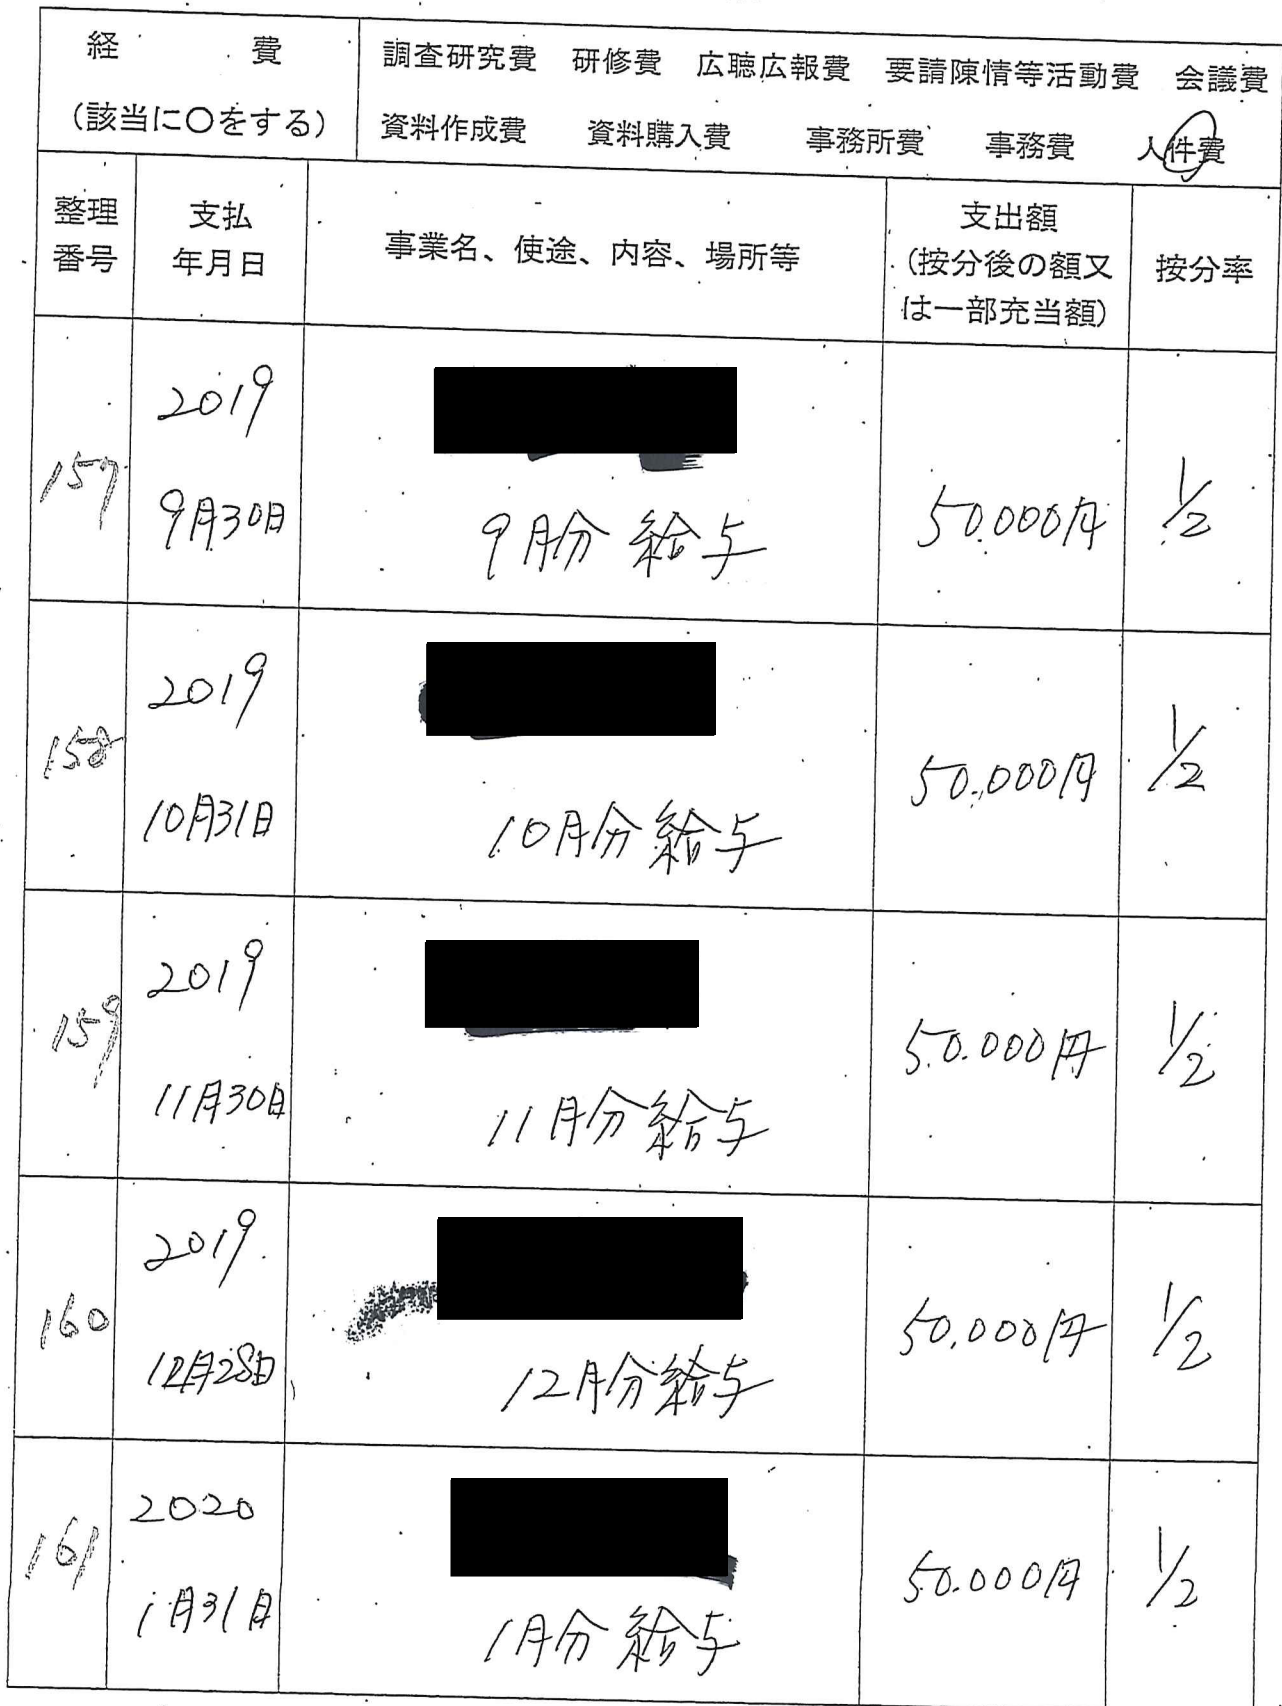 経　費
調査研究費　研修費　広聴広報費　要請陳情等活動費　会議費
(該当に〇をする)
資料作成費　資料購入費　事務所費　事務費　人件費
整理
番号
支払
年月日
事業名、使途、内容、場所等
支出額
(按分後の額又
は一部充当額)
按分率
157
2019
9月30日
9月分 給与
50.000円
1/2
158
2019
10月31日
10月分 給与
50.000円
1/2
159
2019
11月30日
11月分 給与
50.000円
1/2
160
2019
12月28日
12月分 給与
50.000円
1/2
161
2020
1月31日
1月分 給与
50.000円
1/2